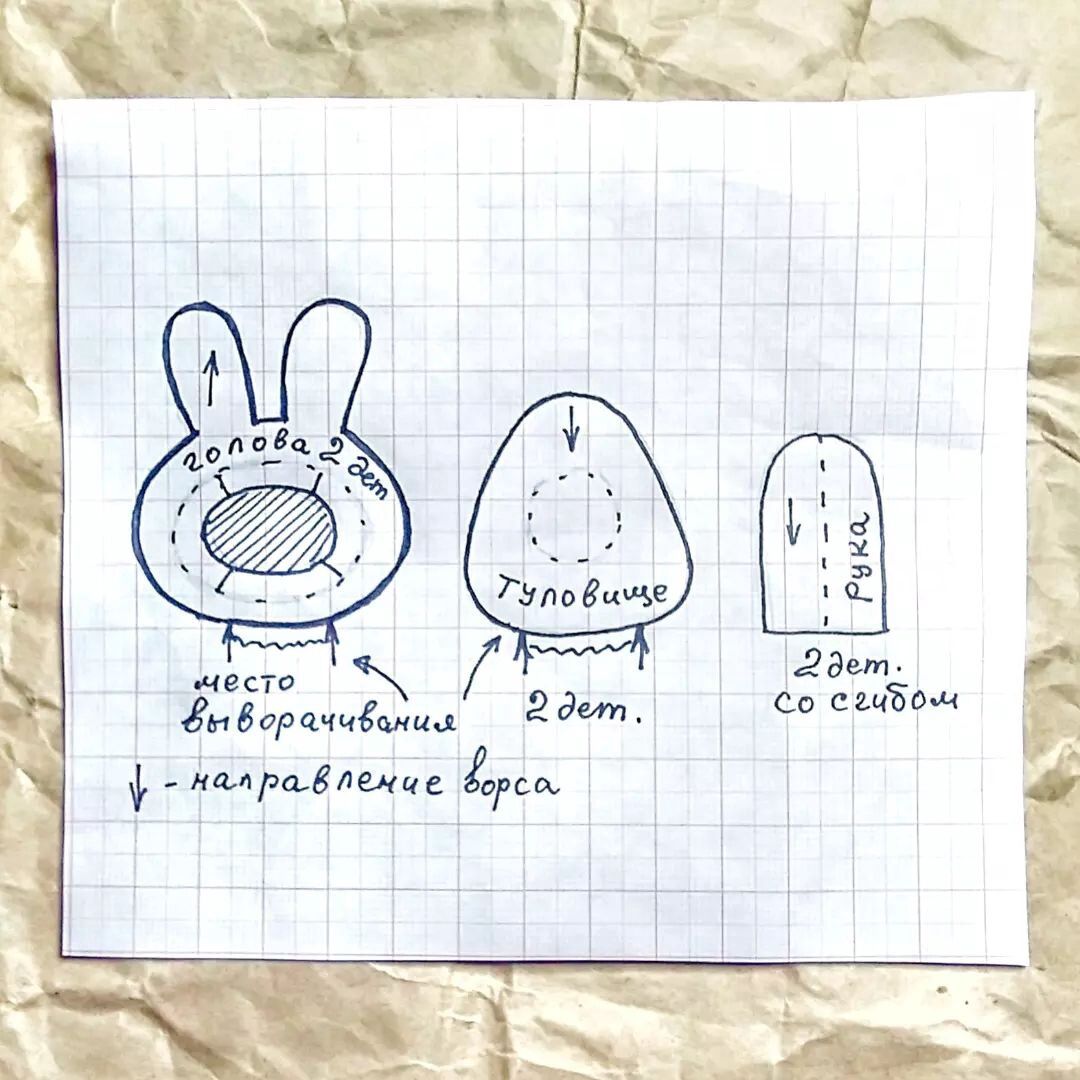 голова 2 дет
Туловище
Рука
место
выворачивания
2 дет.
2 дет.
со сгибом
↓ - направление ворса